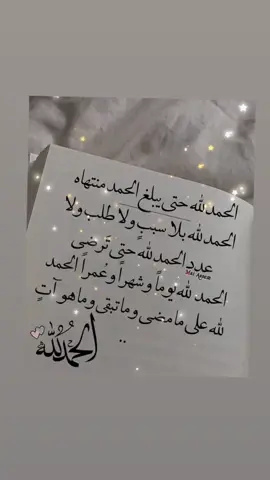 الحمد لله حتى يبلغ الحمد منتهاه
الحمد لله بلا سببٍ ولا طلب ولا
عدد الحمد لله حتى ترضى
الحمد لله يوماً وشهراً وعُمراً الحمد
لله على ما مضى وما تبقى وما هو آتٍ
..
الحمدُ لله